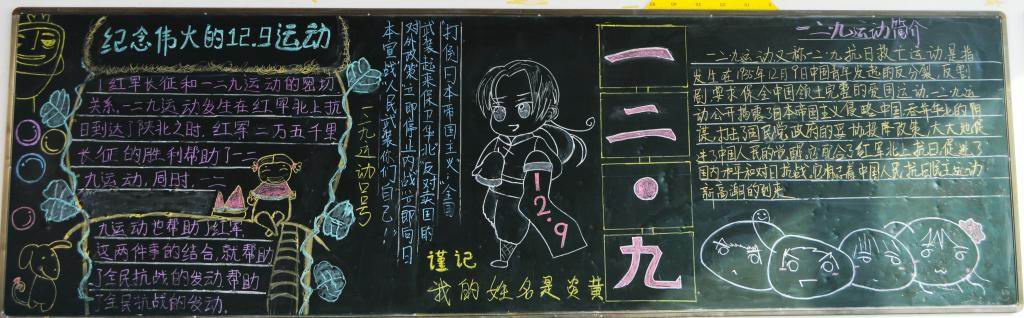 纪念伟大的12.9运动
红军长征和一二九运动的密切
关系.一二九运动发生在红军北上抗
日到达了陕北之时.红军二万五千里
长征的胜利帮助了一二
九运动,同时,一二
九运动也帮助了红军.
这两件事的结合,就帮助
了全民抗战的发动帮助
了全民抗战的发动.
一二九运动口号
"打倒日本帝国主义""全国
武装起来保卫华北"反对卖国的
对外政策"立即停止内战"立即向日
本宣战"人民武装你们自己!"
12.9
谨记
我的姓名是炎黄
一
二
·
九
一二九运动简介
一二九运动又称一二九抗日救亡运动是指
发生在1935年12月9日中国青年发起的反分裂,反割
剧要求保全中国领土完整的爱国运动.一二九运
动公开揭露了日本帝国主义侵略中国
打击了国民党政府的妥协投降政策,大大地促
进了中国人民的觉醒.它配合了红军北上抗日促进了
国内和平和对日抗战.
新高潮的到来